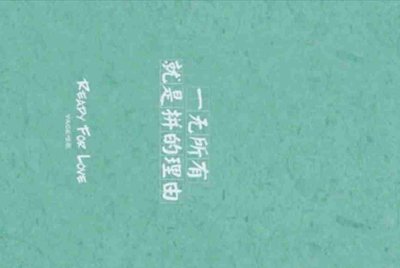 一无所有
就是拼的理由
READY FOR LOVE